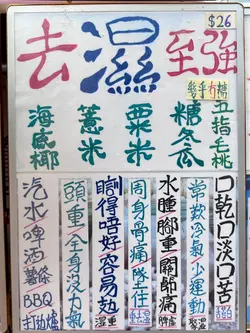 $26
去濕至強
幾乎冇糖
五指毛桃
糖冬瓜
粟米
薏米
海底椰
口乾口淡口苦
常歎冷氣/少運動
水腫/腳重/關節痛
周身骨痛/隊住
瞓得唔好/容易攰
濕重
頭重/全身沒力氣
汽水/啤酒/薯條
BBQ/打边爐